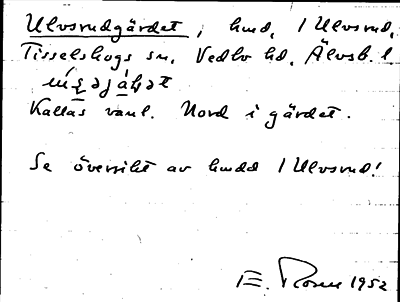 Ulvsrudgärdet, hmd, 1 Ulvsrud,
Tisselskogs sn, Vedbo hd, Älvsb. l.
Kallas vanl. Nord i gärdet.
Se översikt av hmdd 1 Ulvsrud!
E. Rosén 1952